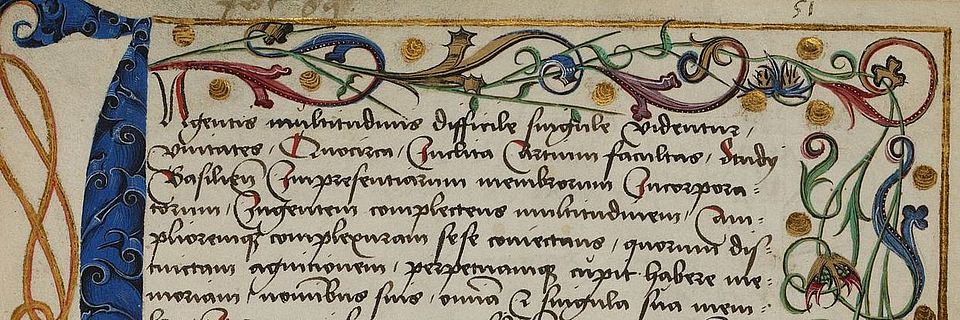 51
Ingentis multitudinis difficile singule videntur,
vnitates, Quocirca, Inclita Artium facultas, studij
Basilien̄ Impresentiarum membrorum Incorpora=
torum, Ingentem complectens multitudinem, Am=
plioremq̧ complexuram sese coniectans, quorum dis=
tinctam agnitionem, perpetuamq̧ cupit habere me=
moriam, nominibus suis, om̄ia & singula sua mem=